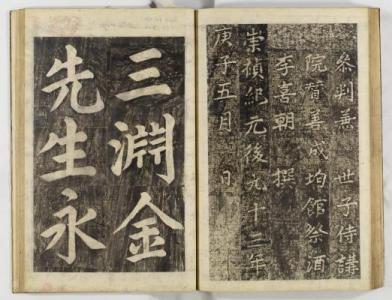 叅判兼 世子侍講
院贊善成均館祭酒
李喜朝 撰
崇禎紀元後九十二年
庚子五月 日
三淵金
先生永